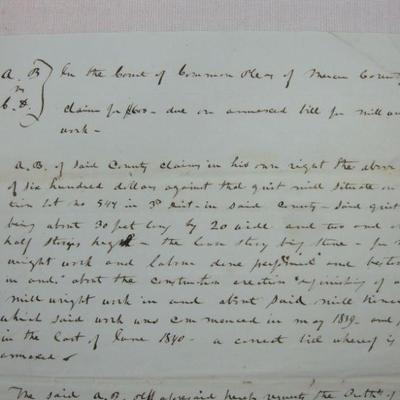 A. B. } In the Court of Common Pleas of Mercer County
vs
C. D. } claim for $600 - due on annexed bill for mill
work -
A. B. of said County claims in his own right the above
of six hundred dollars against that grist mill situate on
lot no 547 in 3d Dist. in said County - said grist
being about 30 feet long by 20 wide and two and
half storys high - the base story being stone - for
wright work and labour done performed and
in and about the construction erection & finishing of
mill wright work in and about said mill
which said work was commenced in may 1839 - and
in the last of June 1840 - a correct bill whereof is
annexed
The said A. B. aforesaid hereby requests the Prothy of